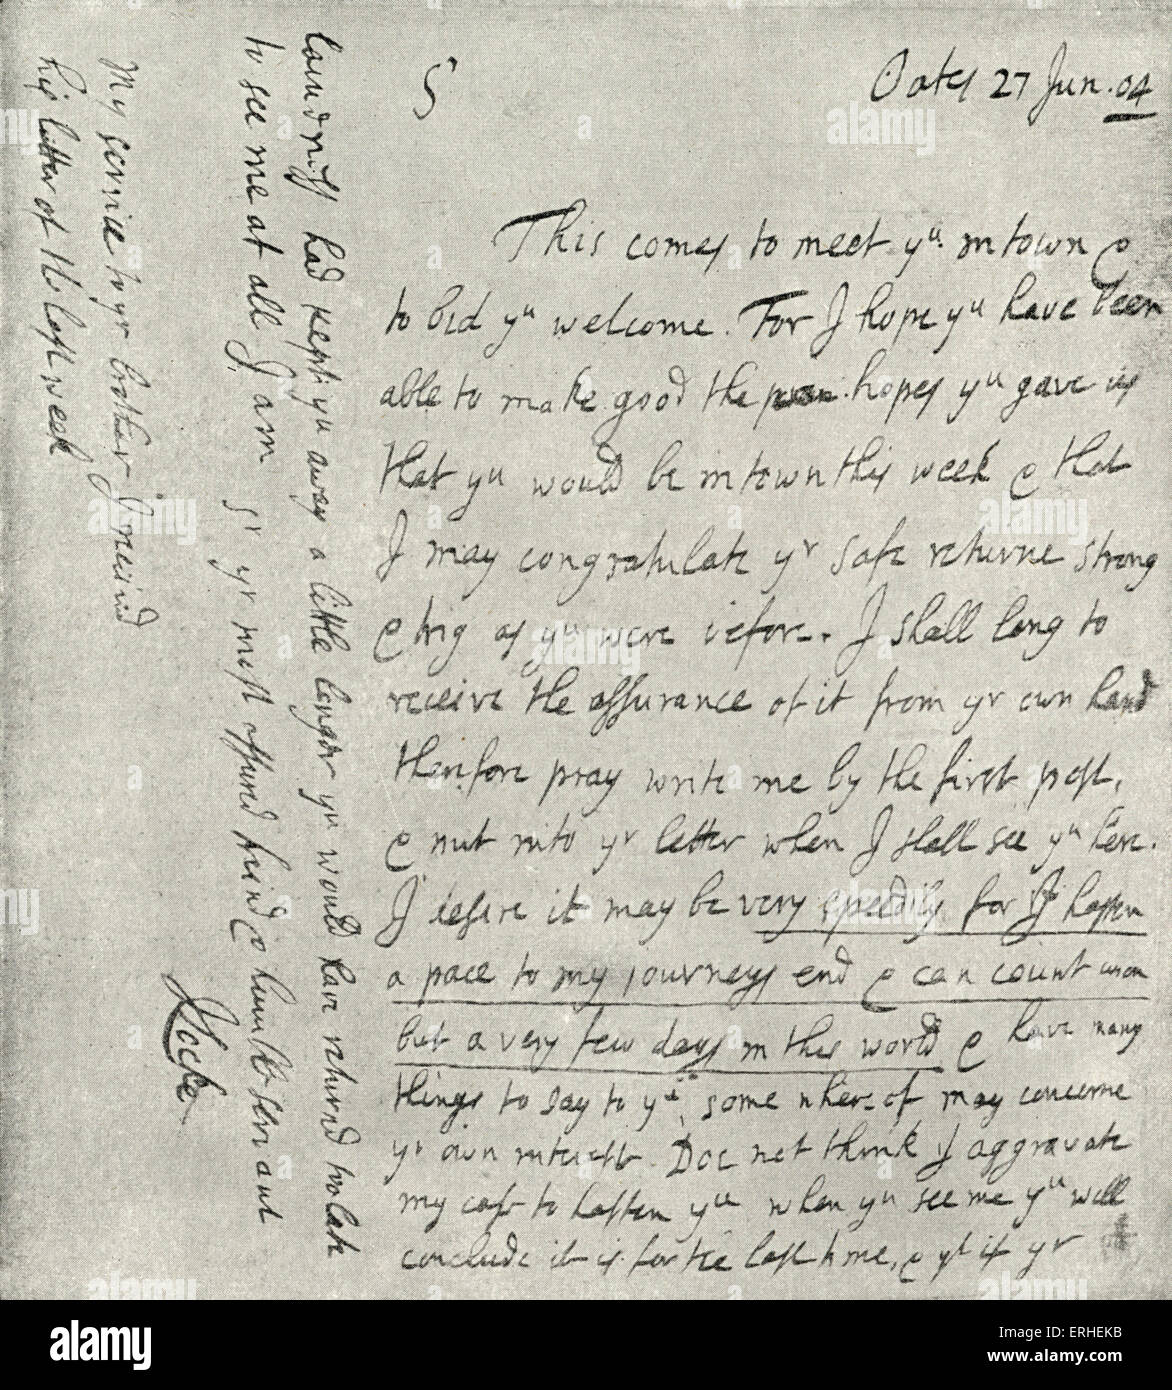 Oates 27 Jun. 04
S
This comes to meet yu in town &
to bid yu welcome. For I hope yu have been
able to make good the hopes yu gave us
that yu would be in town this week & that
I may congratulate yr safe returne strong
& as yu were before. I shall long to
receive the assurance of it from yr own hand
therefore pray write me by the first post,
& put into yr letter when I shall see yu here.
I desire it may be very speedily for I hasten
a pace to my journeys end & can count upon
but a very few days in this world & have many
things to say to yu, some whereof may concerne
yr own interest. Doe not think I aggravate
my case to hasten yu when yu see me yu will
conclude it is for the last time, & yt if yr
had kept yu away a little longer yu would have returnd too late
to see me at all I am Sr yr most affectd freind & humble servant
JLocke
My service to yr brother I receivd
his letter of the last week
alamy
a
alamy stock photo
ERHEKB
www.alamy.com